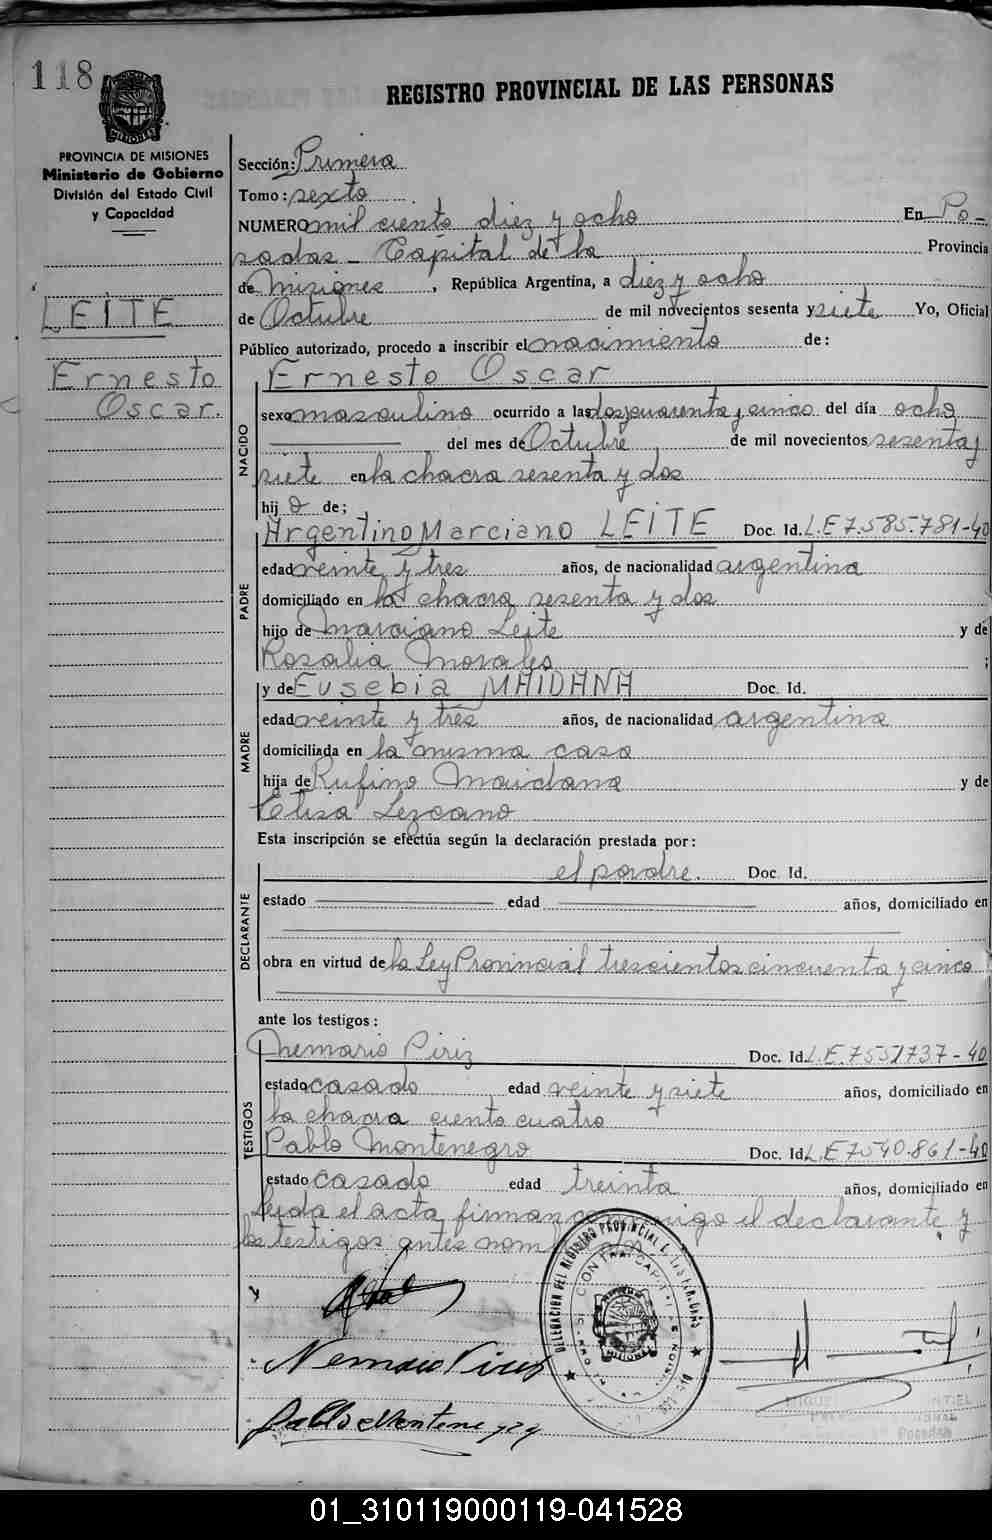 118
REGISTRO PROVINCIAL DE LAS PERSONAS
PROVINCIA DE MISIONES
Ministerio de Gobierno
División del Estado Civil
y Capacidad
LEITE
Ernesto
Oscar.
Sección: Primera
Tomo: sexto
NUMERO mil ciento diez y ocho En Po-
sadas - Capital de la Provincia
de Misiones, República Argentina, a diez y ocho
de Octubre de mil novecientos sesenta y siete Yo, Oficial
Público autorizado, procedo a inscribir el nacimiento de:
NACIDO
Ernesto Oscar
sexo masculino ocurrido a las dos, cuarenta y cinco del día ocho
del mes de Octubre de mil novecientos sesenta y
siete en la chacra sesenta y dos
hijo de;
PADRE
Argentino Marciano LEITE Doc. Id. L.E 7.585.781-40
edad veinte y tres años, de nacionalidad argentina
domiciliado en la chacra sesenta y dos
hijo de Marciano Leite y de
Rosalia Morales ;
MADRE
y de Eusebia MAIDANA Doc. Id.
edad veinte y tres años, de nacionalidad argentina
domiciliada en la misma casa
hija de Rufino Maidana y de
Elisa Lezcano
Esta inscripción se efectúa según la declaración prestada por:
DECLARANTE
el padre. Doc. Id.
estado edad años, domiciliado en
obra en virtud de la Ley Provincial trescientos cincuenta y cinco
ante los testigos:
TESTIGOS
Nemario Piriz Doc. Id. L.E. 7551737-40
estado casado edad veinte y siete años, domiciliado en
la chacra ciento cuatro
Pablo Montenegro Doc. Id. L.E 7540.861-40
estado casado edad treinta años, domiciliado en
Leida el acta, firman conmigo el declarante y
los testigos antes nom
DELEGACION DEL REGISTRO PROVINCIAL DE LAS PERSONAS
MISIONES
Pablo Montenegro
01_310119000119-041528